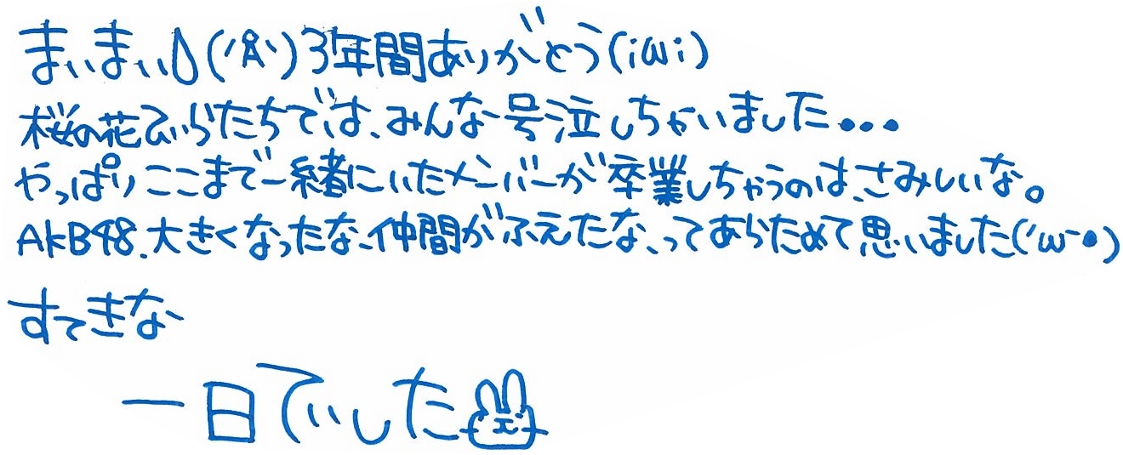 まぃまぃ('A`)3年間ありがとう(iωi)
桜の花びらたちでは、みんな号泣しちゃいました...
やっぱりここまで一緒にいたメンバーが卒業しちゃうのは、さみしいな。
AKB48、大きくなったな、仲間がふえたな、ってあらためて思いました('ω`•)
すてきな
一日でぃした